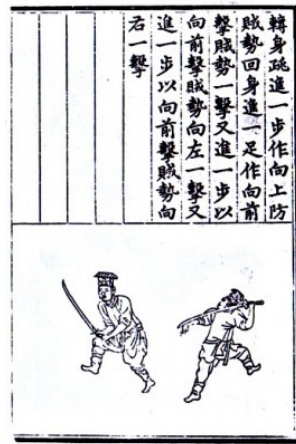 轉身跳進一步作向上防
賊勢回身進一足作向前
擊賊勢一擊又進一步以
向前擊賊勢向左一擊又
進一步以向前擊賊勢向
右一擊